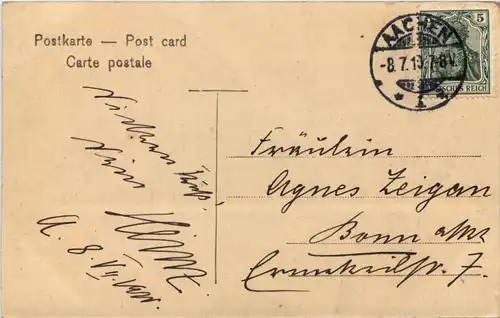 Postkarte — Post card
Carte postale
AACHEN
-8.7.10.7-8V.
* 1 *
5
DEUTSCHES REICH
Dein
Heinz
A. 8. VII.
Fräulein
Agnes Zeigan
Bonn a/Rh
Ermekeilstr. 7.